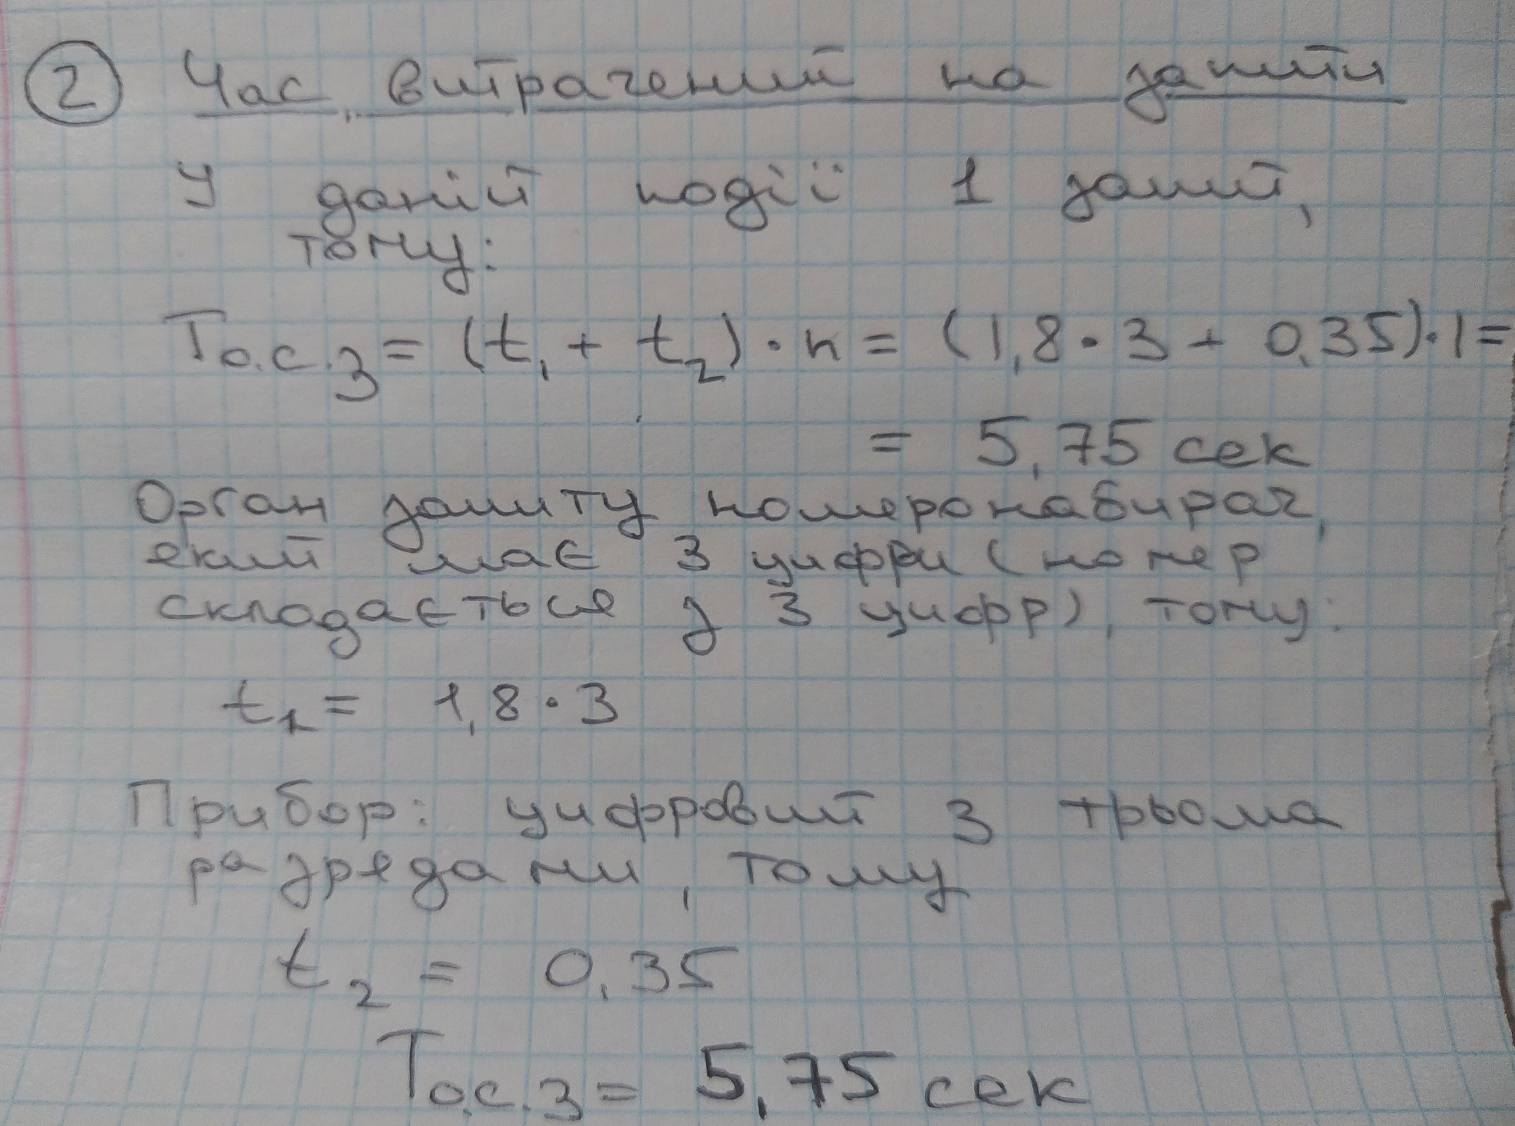 2 Час, витрачений на запити
У даній події 1 запит,
тому:
То.с.з = (t₁ + t₂) · n = (1,8 · 3 + 0,35) · 1 =
= 5,75 сек
Орган запиту номеронабирач,
який має 3 цифри (номер
складається з 3 цифр), тому:
t₁ = 1,8 · 3
Прибор: цифровий з трьома
разрядами, тому
t₂ = 0,35
То.с.з = 5,75 сек